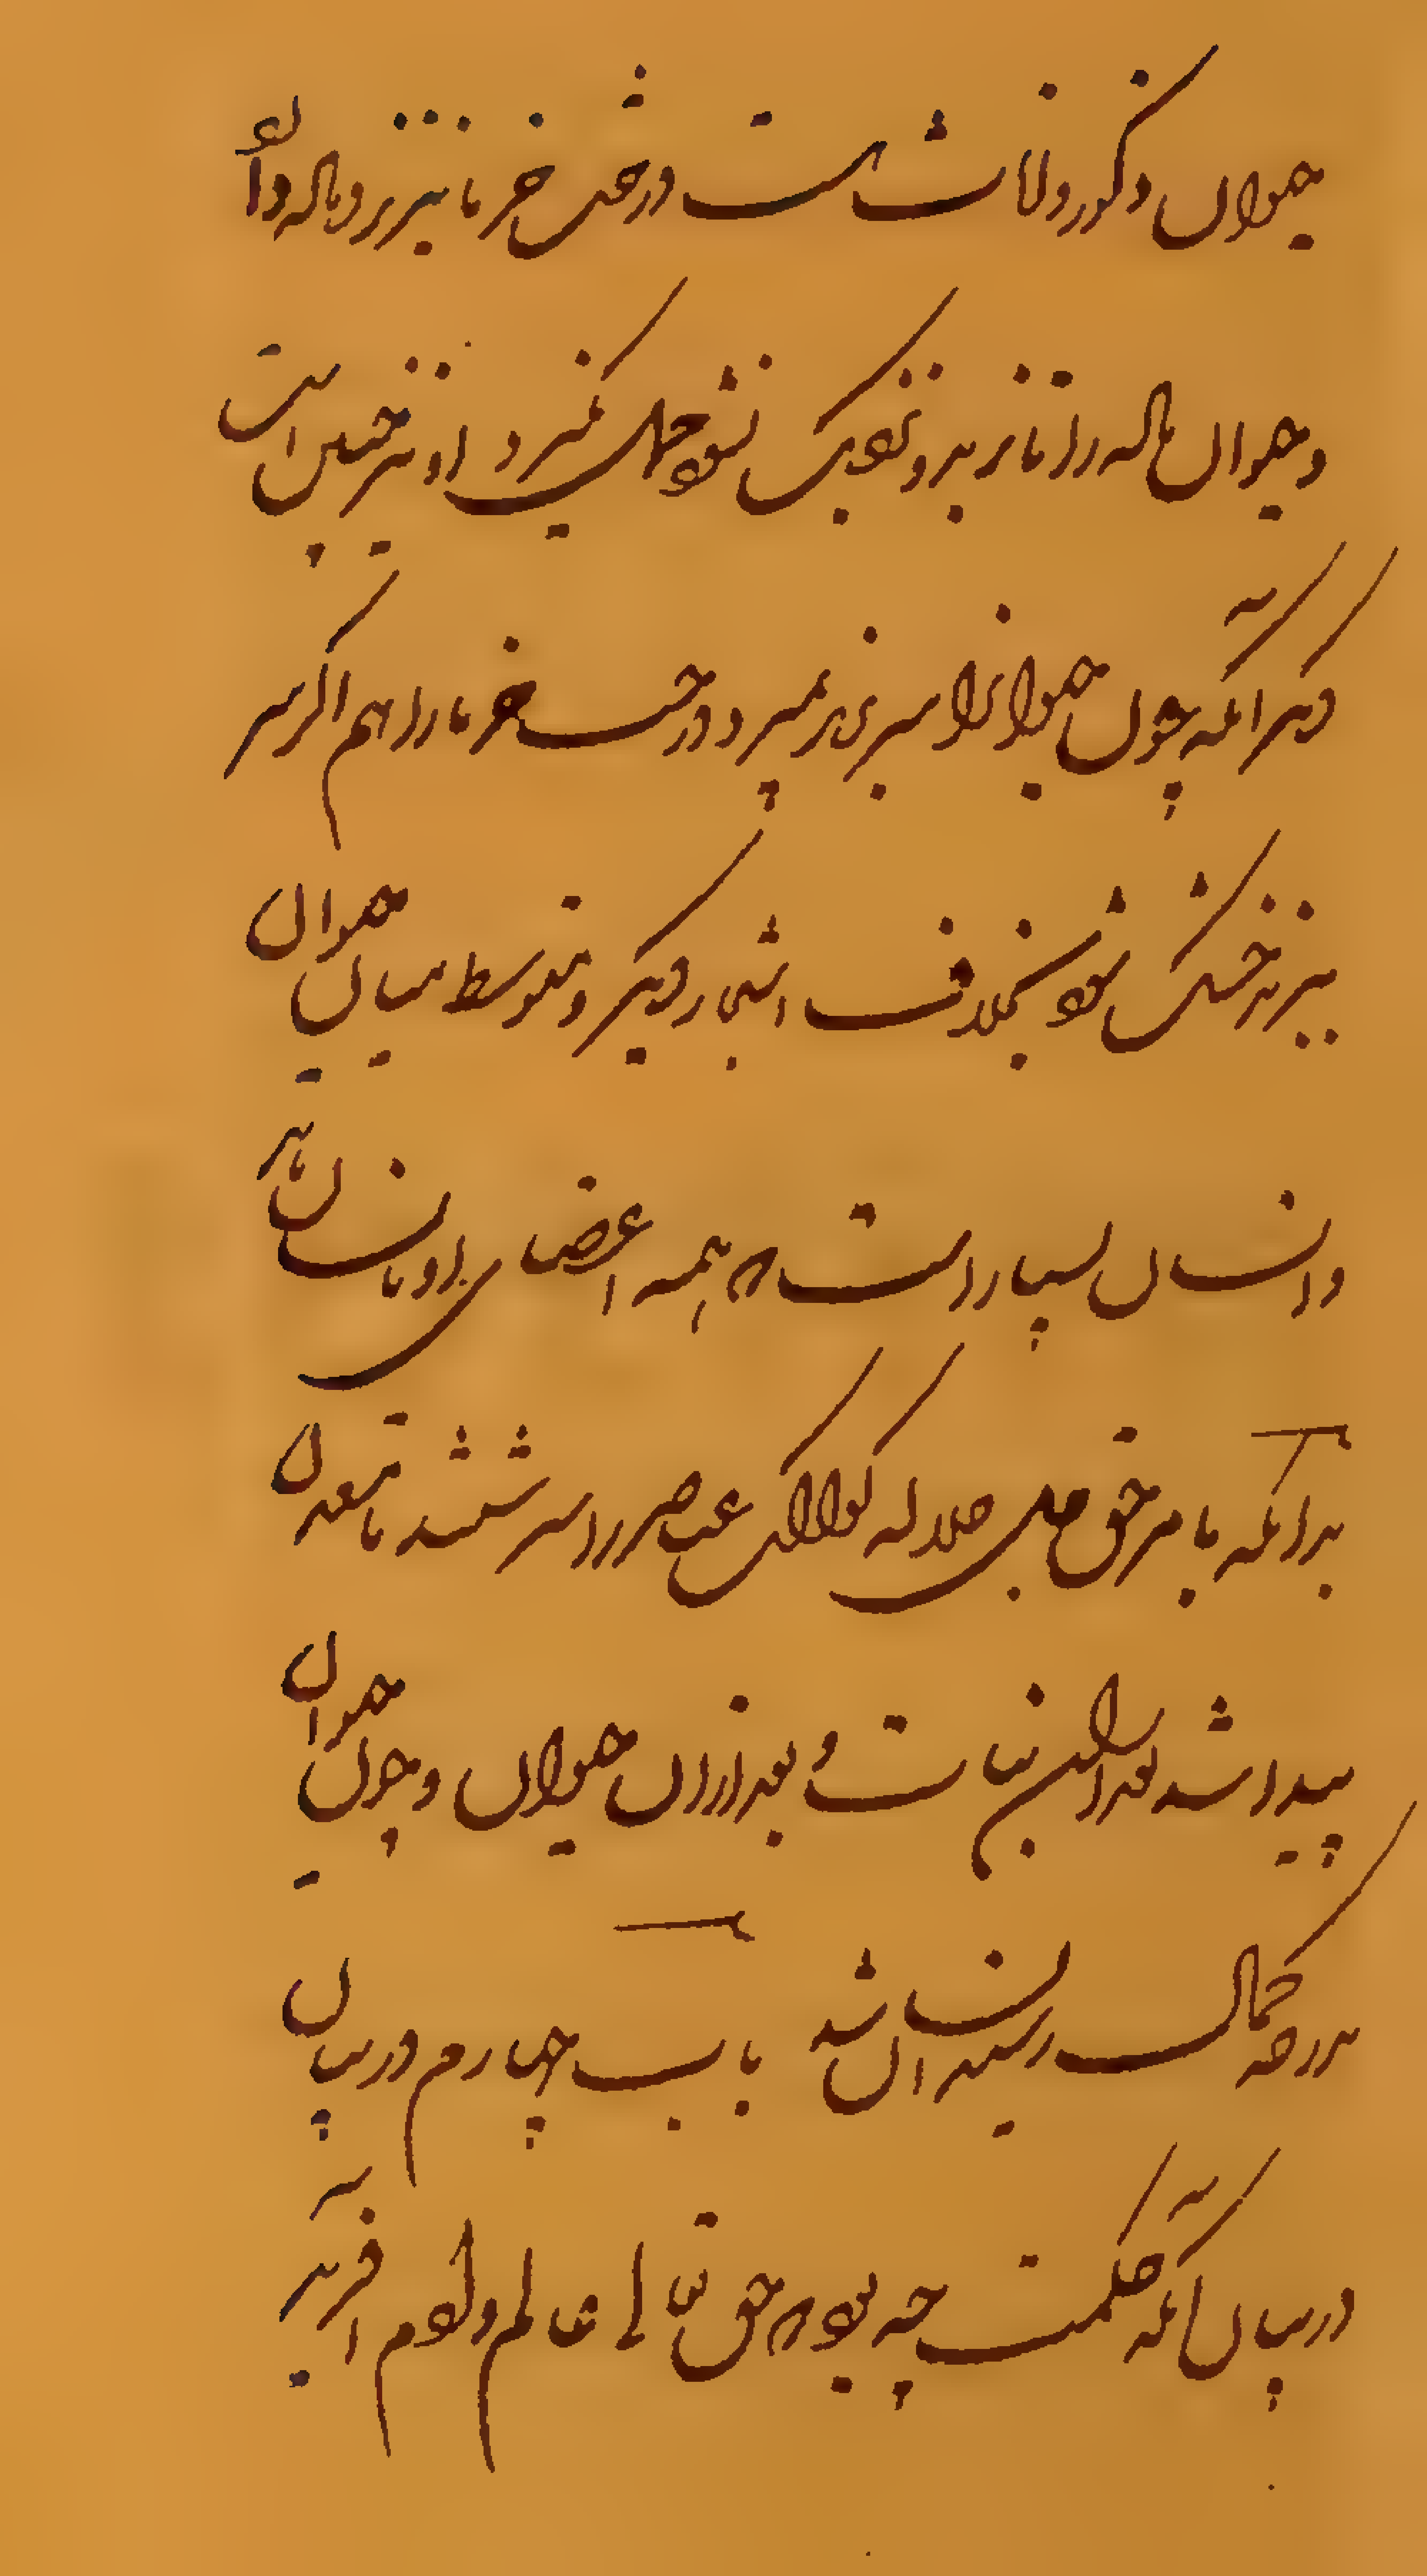 حیوان ذکور و اناث است درخت خرما نیز نر و ماده دارد
و حیوان ماده را تا نر بدو نزدیک نشود حمل نگیرد او نیز چنین است
دیگر آنکه چون حیوانرا سر ببرند بمیرد درخت خرما را هم اگر سر
ببرند خشک شود بخلاف اشجار دیگر و متوسط میان حیوان
و انسان بسیار است که بهمه اعضای او بانسان ماند
بدانکه بامر حق جل جلاله کواکب عناصر را سرشتند تا معدن
پیدا شد بعد از این نبات و بعد از آن حیوان و چون حیوان
بدرجه کمال رسید انسان شد باب چهارم در بیان
در بیان آنکه حکمت چه بود که حق تعالی عالم و آدم آفرید